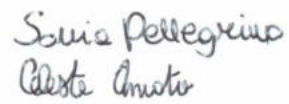 Sonia Pellegrino
Celeste Amato